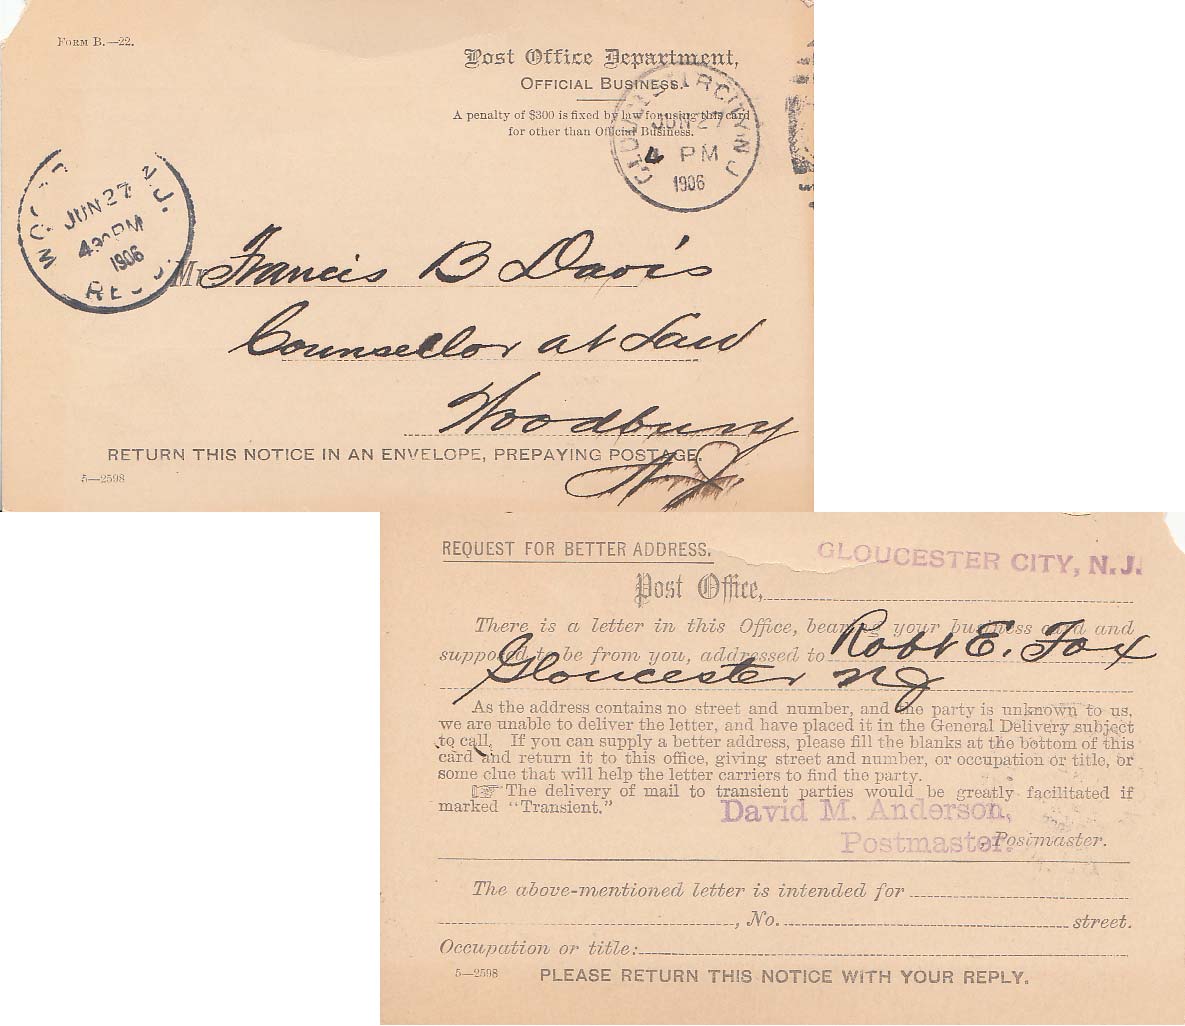 FORM B.—22.
Post Office Department,
OFFICIAL BUSINESS.
A penalty of $300 is fixed by law for using this card
for other than Official Business.
GLOUCESTER CITY N J
JUN 27
4 PM
1906
N.J.
JUN 27
PM
1906
Mr Francis B Davis
Counsellor at Law
Woodbury
N.J.
RETURN THIS NOTICE IN AN ENVELOPE, PREPAYING POSTAGE.
5—2598
REQUEST FOR BETTER ADDRESS.
GLOUCESTER CITY, N.J.
Post Office,
There is a letter in this Office, bearing your business card and
supposed to be from you, addressed to Robt E. Fox
Gloucester NJ
As the address contains no street and number, and the party is unknown to us,
we are unable to deliver the letter, and have placed it in the General Delivery subject
to call. If you can supply a better address, please fill the blanks at the bottom of this
card and return it to this office, giving street and number, or occupation or title, or
some clue that will help the letter carriers to find the party.
☞ The delivery of mail to transient parties would be greatly facilitated if
marked "Transient."
David M. Anderson,
Postmaster.
, Postmaster.
The above-mentioned letter is intended for
, No. street.
Occupation or title:
5—2598 PLEASE RETURN THIS NOTICE WITH YOUR REPLY.